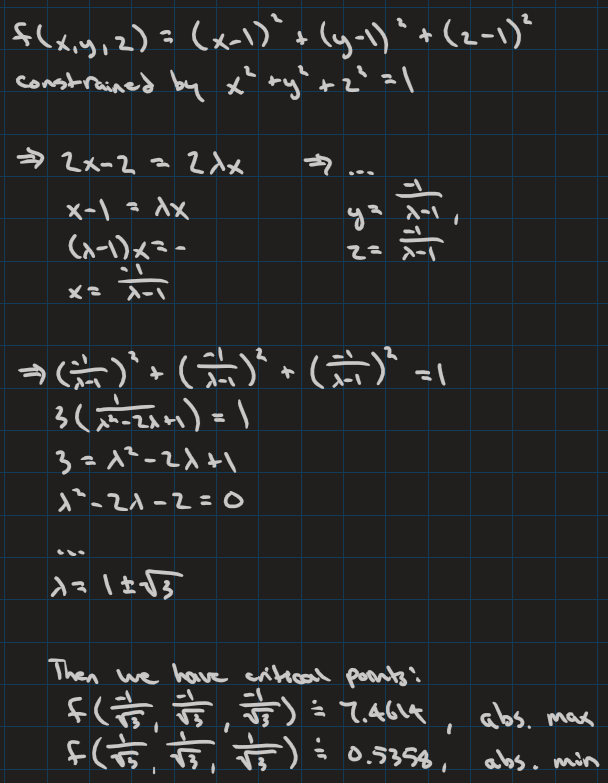 f(x,y,z) = (x-1)² + (y-1)² + (z-1)²
constrained by x² + y² + z² = 1
⇒ 2x-2 = 2λx
x-1 = λx
(λ-1)x = -
x = -1/(λ-1)
⇒ ...
y = -1/(λ-1),
z = -1/(λ-1)
⇒ (-1/(λ-1))² + (-1/(λ-1))² + (-1/(λ-1))² = 1
3(1/(λ²-2λ+1)) = 1
3 = λ²-2λ+1
λ²-2λ-2 = 0
...
λ = 1±√3
Then we have critical points:
f(-1/√3, -1/√3, -1/√3) ≐ 7.4614, abs. max
f(1/√3, 1/√3, 1/√3) ≐ 0.5358, abs. min